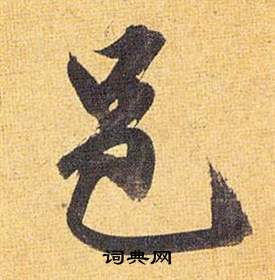 邑
词典网